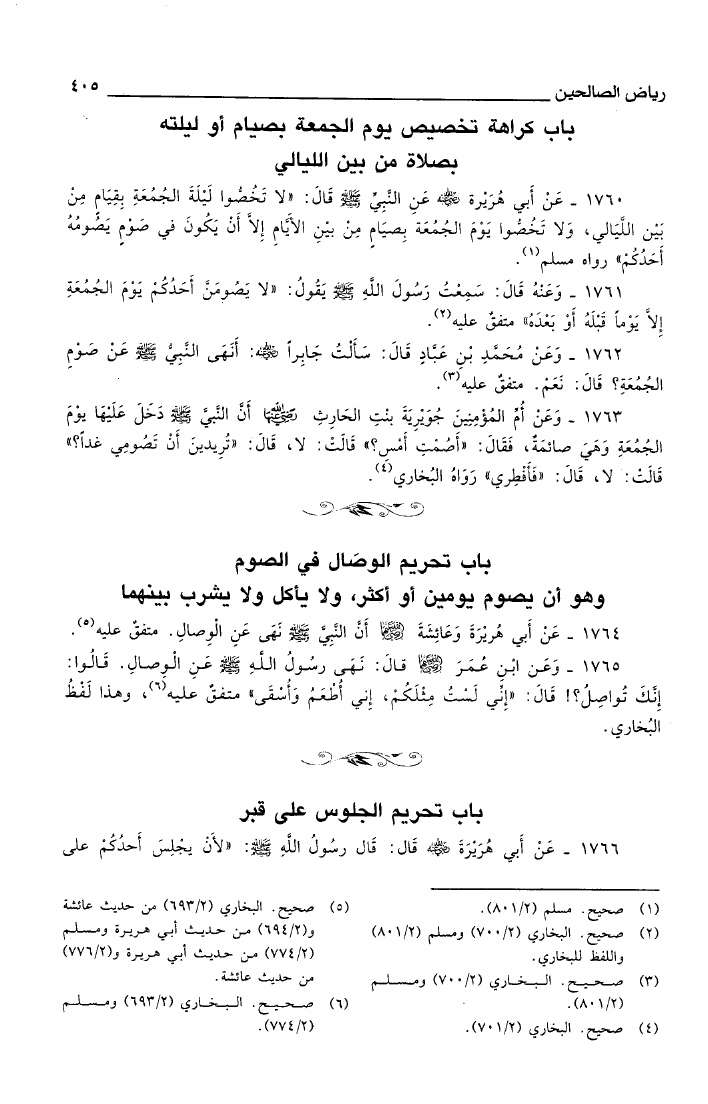 رياض الصالحين ٤٠٥
باب كراهة تخصيص يوم الجمعة بصيام أو ليلته
بصلاة من بين الليالي
١٧٦٠ ـ عَنْ أَبي هُرَيْرة ﵁ عَنِ النَّبيِّ ﷺ قَالَ: «لا تَخُصُّوا لَيْلَةَ الجُمُعَةِ بِقِيَامٍ مِنْ
بَيْنِ اللَّيَالي، وَلا تَخُصُّوا يَوْمَ الجُمُعَة بِصِيَامٍ مِنْ بَيْنِ الأَيَّامِ إلاَّ أَنْ يَكُونَ في صَوْمٍ يَصُومُهُ
أَحَدُكُمْ» رواه مسلم(١).
١٧٦١ ـ وَعَنْهُ قَالَ: سَمِعْتُ رَسُولَ اللَّهِ ﷺ يَقُولُ: «لا يَصُومَنَّ أَحَدُكُمْ يَوْمَ الجُمُعَةِ
إلاَّ يَوْماً قَبْلَهُ أَوْ بَعْدَهُ» متفقٌ عليه(٢).
١٧٦٢ ـ وَعَنْ مُحَمَّدِ بْنِ عَبَّادٍ قَالَ: سَأَلْتُ جَابِراً ﵁: أَنَهَى النَّبيُّ ﷺ عَنْ صَوْمِ
الجُمُعَةِ؟ قَالَ: نَعَمْ. متفقٌ عليه(٣).
١٧٦٣ ـ وَعَنْ أُمِّ المُؤْمِنِينَ جُوَيْرِيَةَ بِنْتِ الحَارِثِ ﵂ أَنَّ النَّبيَّ ﷺ دَخَلَ عَلَيْهَا يَوْمَ
الجُمُعَةِ وَهَيَ صائمَةٌ، فَقَالَ: «أَصُمْتِ أَمْسِ؟» قَالَتْ: لا، قَالَ: «تُرِيدينَ أَنْ تَصُومِي غداً؟»
قَالَتْ: لا، قَالَ: «فَأَفْطِري» رَوَاهُ البُخاري(٤).
باب تحريم الوصَال في الصوم
وهو أن يصوم يومين أو أكثر، ولا يأكل ولا يشرب بينهما
١٧٦٤ ـ عَنْ أَبي هُرَيْرَةَ وَعَائِشَةَ ﵄ أَنَّ النَّبيَّ ﷺ نَهَى عَنِ الْوِصالِ. متفقٌ عليه(٥).
١٧٦٥ ـ وَعَن ابْنِ عُمَرَ ﵄ قالَ: نَهَى رسُولُ اللَّهِ ﷺ عَنِ الْوِصالِ. قَالُوا:
إنَّكَ تُواصِلُ؟! قَالَ: «إنِّي لَسْتُ مِثْلَكُمْ، إني أُطْعَمُ وَأُسْقَى» متفقٌ عليه(٦)، وهذا لَفْظُ
البُخاري.
باب تحريم الجلوس على قبر
١٧٦٦ ـ عَنْ أَبي هُرَيْرَةَ ﵁ قالَ: قال رسُولُ اللَّهِ ﷺ: «لأَنْ يجْلِسَ أَحدُكُمْ على
(١) صحيح. مسلم (٨٠١/٢).
(٢) صحيح. البخاري (٧٠٠/٢) ومسلم (٨٠١/٢)
واللفظ للبخاري.
(٣) صحيح. البخاري (٧٠٠/٢) ومسلم
(٨٠١/٢).
(٤) صحيح. البخاري (٧٠١/٢).
(٥) صحيح. البخاري (٦٩٣/٢) من حديث عائشة
و(٦٩٤/٢) من حديث أبي هريرة ومسلم
(٧٧٤/٢) من حديث أبي هريرة و(٧٧٦/٢)
من حديث عائشة.
(٦) صحيح. البخاري (٦٩٣/٢) ومسلم
(٧٧٤/٢).